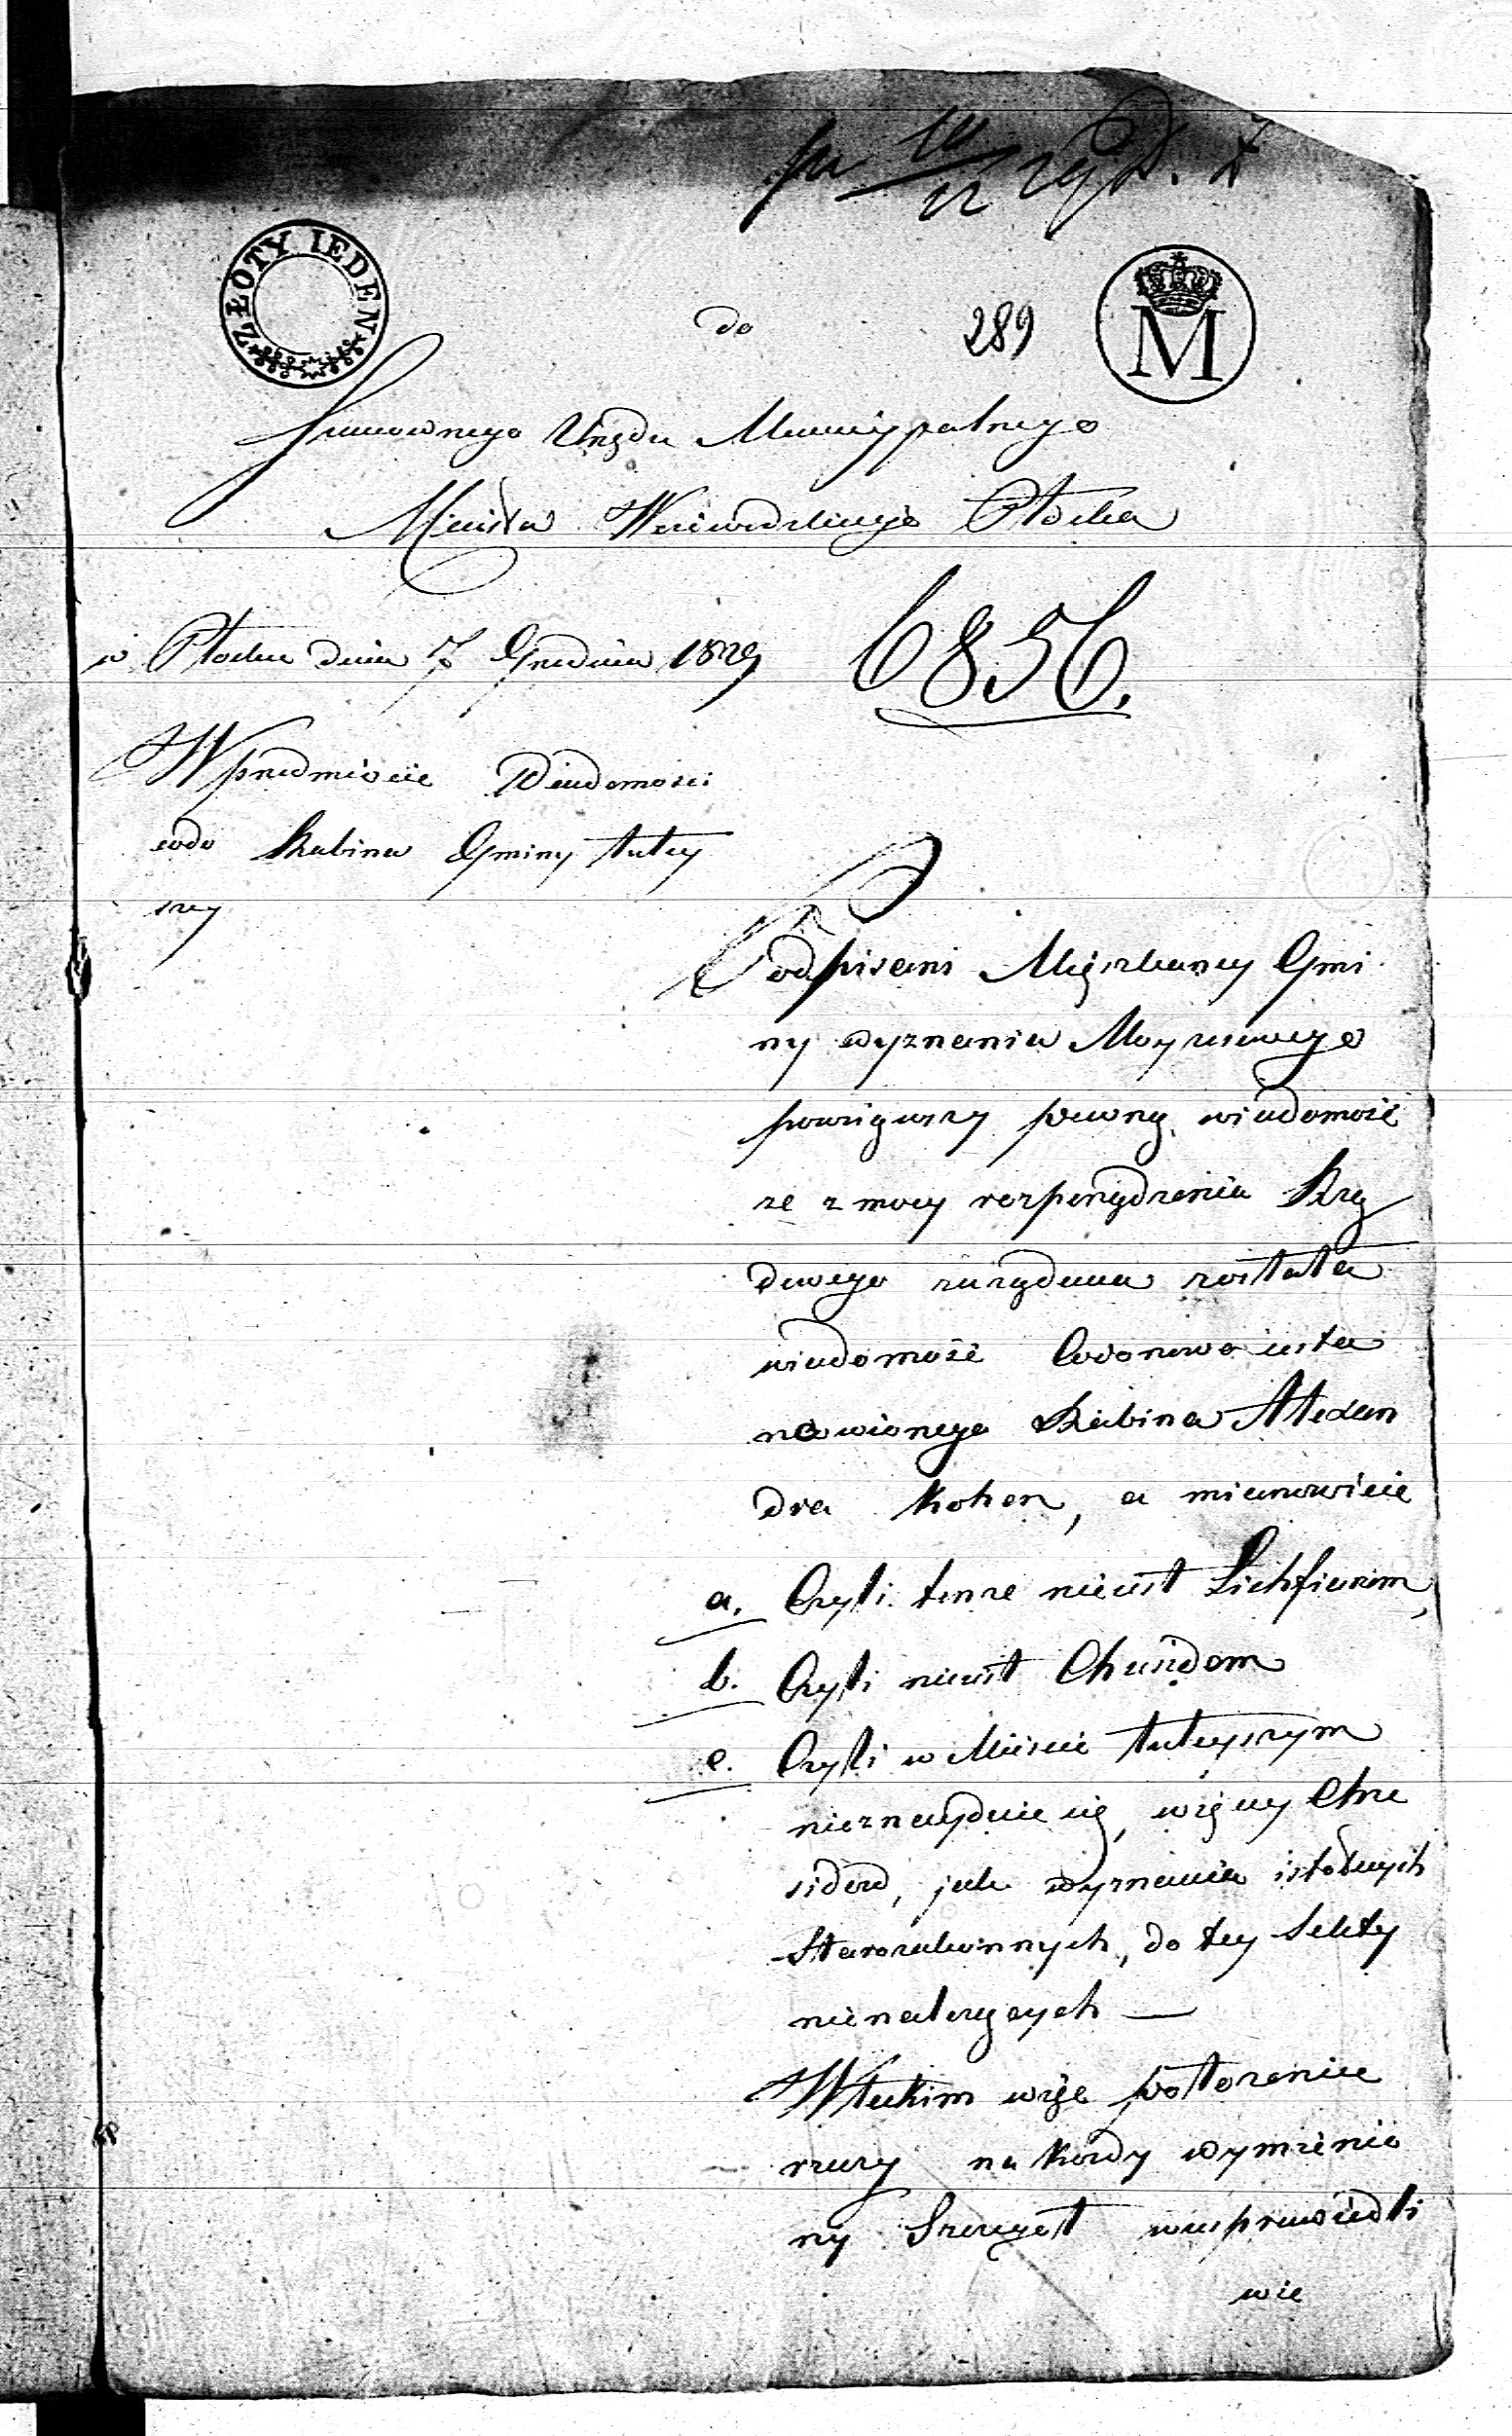 ZŁOTY IEDEN
do
289
M
Szanownego Urzędu Municypalnego
Miasta Woiewodzkiego Płocka
w Płocku dnia 7 Grudnia 1829
6856.
W przedmiocie Wiadomosci
codo Rabina Gminy tutey
szey
Podpisani Mięszkancy Gmi
ny wyznania Moyżeszowego
powziąwszy pewną wiadomość
ze z mocy rozporządzenia Rzą
dowego zarządana została
wiadomość Co do nowo usta
nowionego Rabina Alexan
dra Kohen, a mianowicie
a. Czyli tenze nieiest Lichfiarzem,
b. Czyli nieiest Chusidem
c. Czyli w Miescie tuteyszym
nieznayduie się, więcey Chu
sidow, jak wyznania istotnych
Starozakonnych, do tey Sekty
nienalezących —
W takim więc położeniu
rzeczy na kazdy wymienio
ny Szczegół
wie